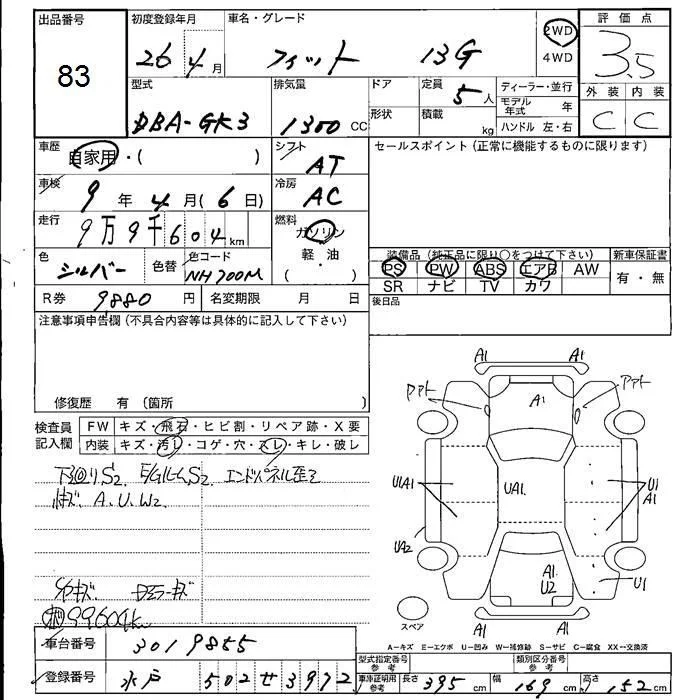 出品番号 83
初度登録年月 26年4月
車名・グレード フィット 13G
2WD
4WD
評価点 3.5
外装 内装
C C
型式 DBA-GK3
排気量 1300 CC
ドア
形状
定員 5人
積載 kg
ディーラー・並行
モデル年式 年
ハンドル 左・右
車歴 自家用・( )
シフト AT
セールスポイント(正常に機能するものに限ります)
車検 9年4月(6日)
冷房 AC
走行 9万9千604km
燃料 ガソリン
軽・油
( )
色 シルバー
色替
色コード NH700M
装備品(純正品に限り○をつけて下さい)
PS PW ABS エアB AW
SR ナビ TV カワ
新車保証書
有・無
R券 9880円
名変期限 月 日
後日品
注意事項申告欄(不具合内容等は具体的に記入して下さい)
修復歴 有(箇所
検査員記入欄
FW キズ・飛石・ヒビ割・リペア跡・X要
内装 キズ・汚レ・コゲ・穴・スレ・キレ・破レ
下回りS2 E/GルームS2 エンドパネル歪2
A.U.W2
Dミラーキズ
99604k
A1 A1
A1
U1A1
UA1
U1
A1
UA2
A1
U2
U1
A1 A1
スペア
A−キズ E−エクボ U−凹み W−補修跡 S−サビ C−腐食 XX−交換済
車台番号 3019855
登録番号 水戸 502 せ 3972
型式指定番号 参考
類別区分番号 参考
車庫証明用 参考 長さ 395cm 幅 169cm 高さ 152cm